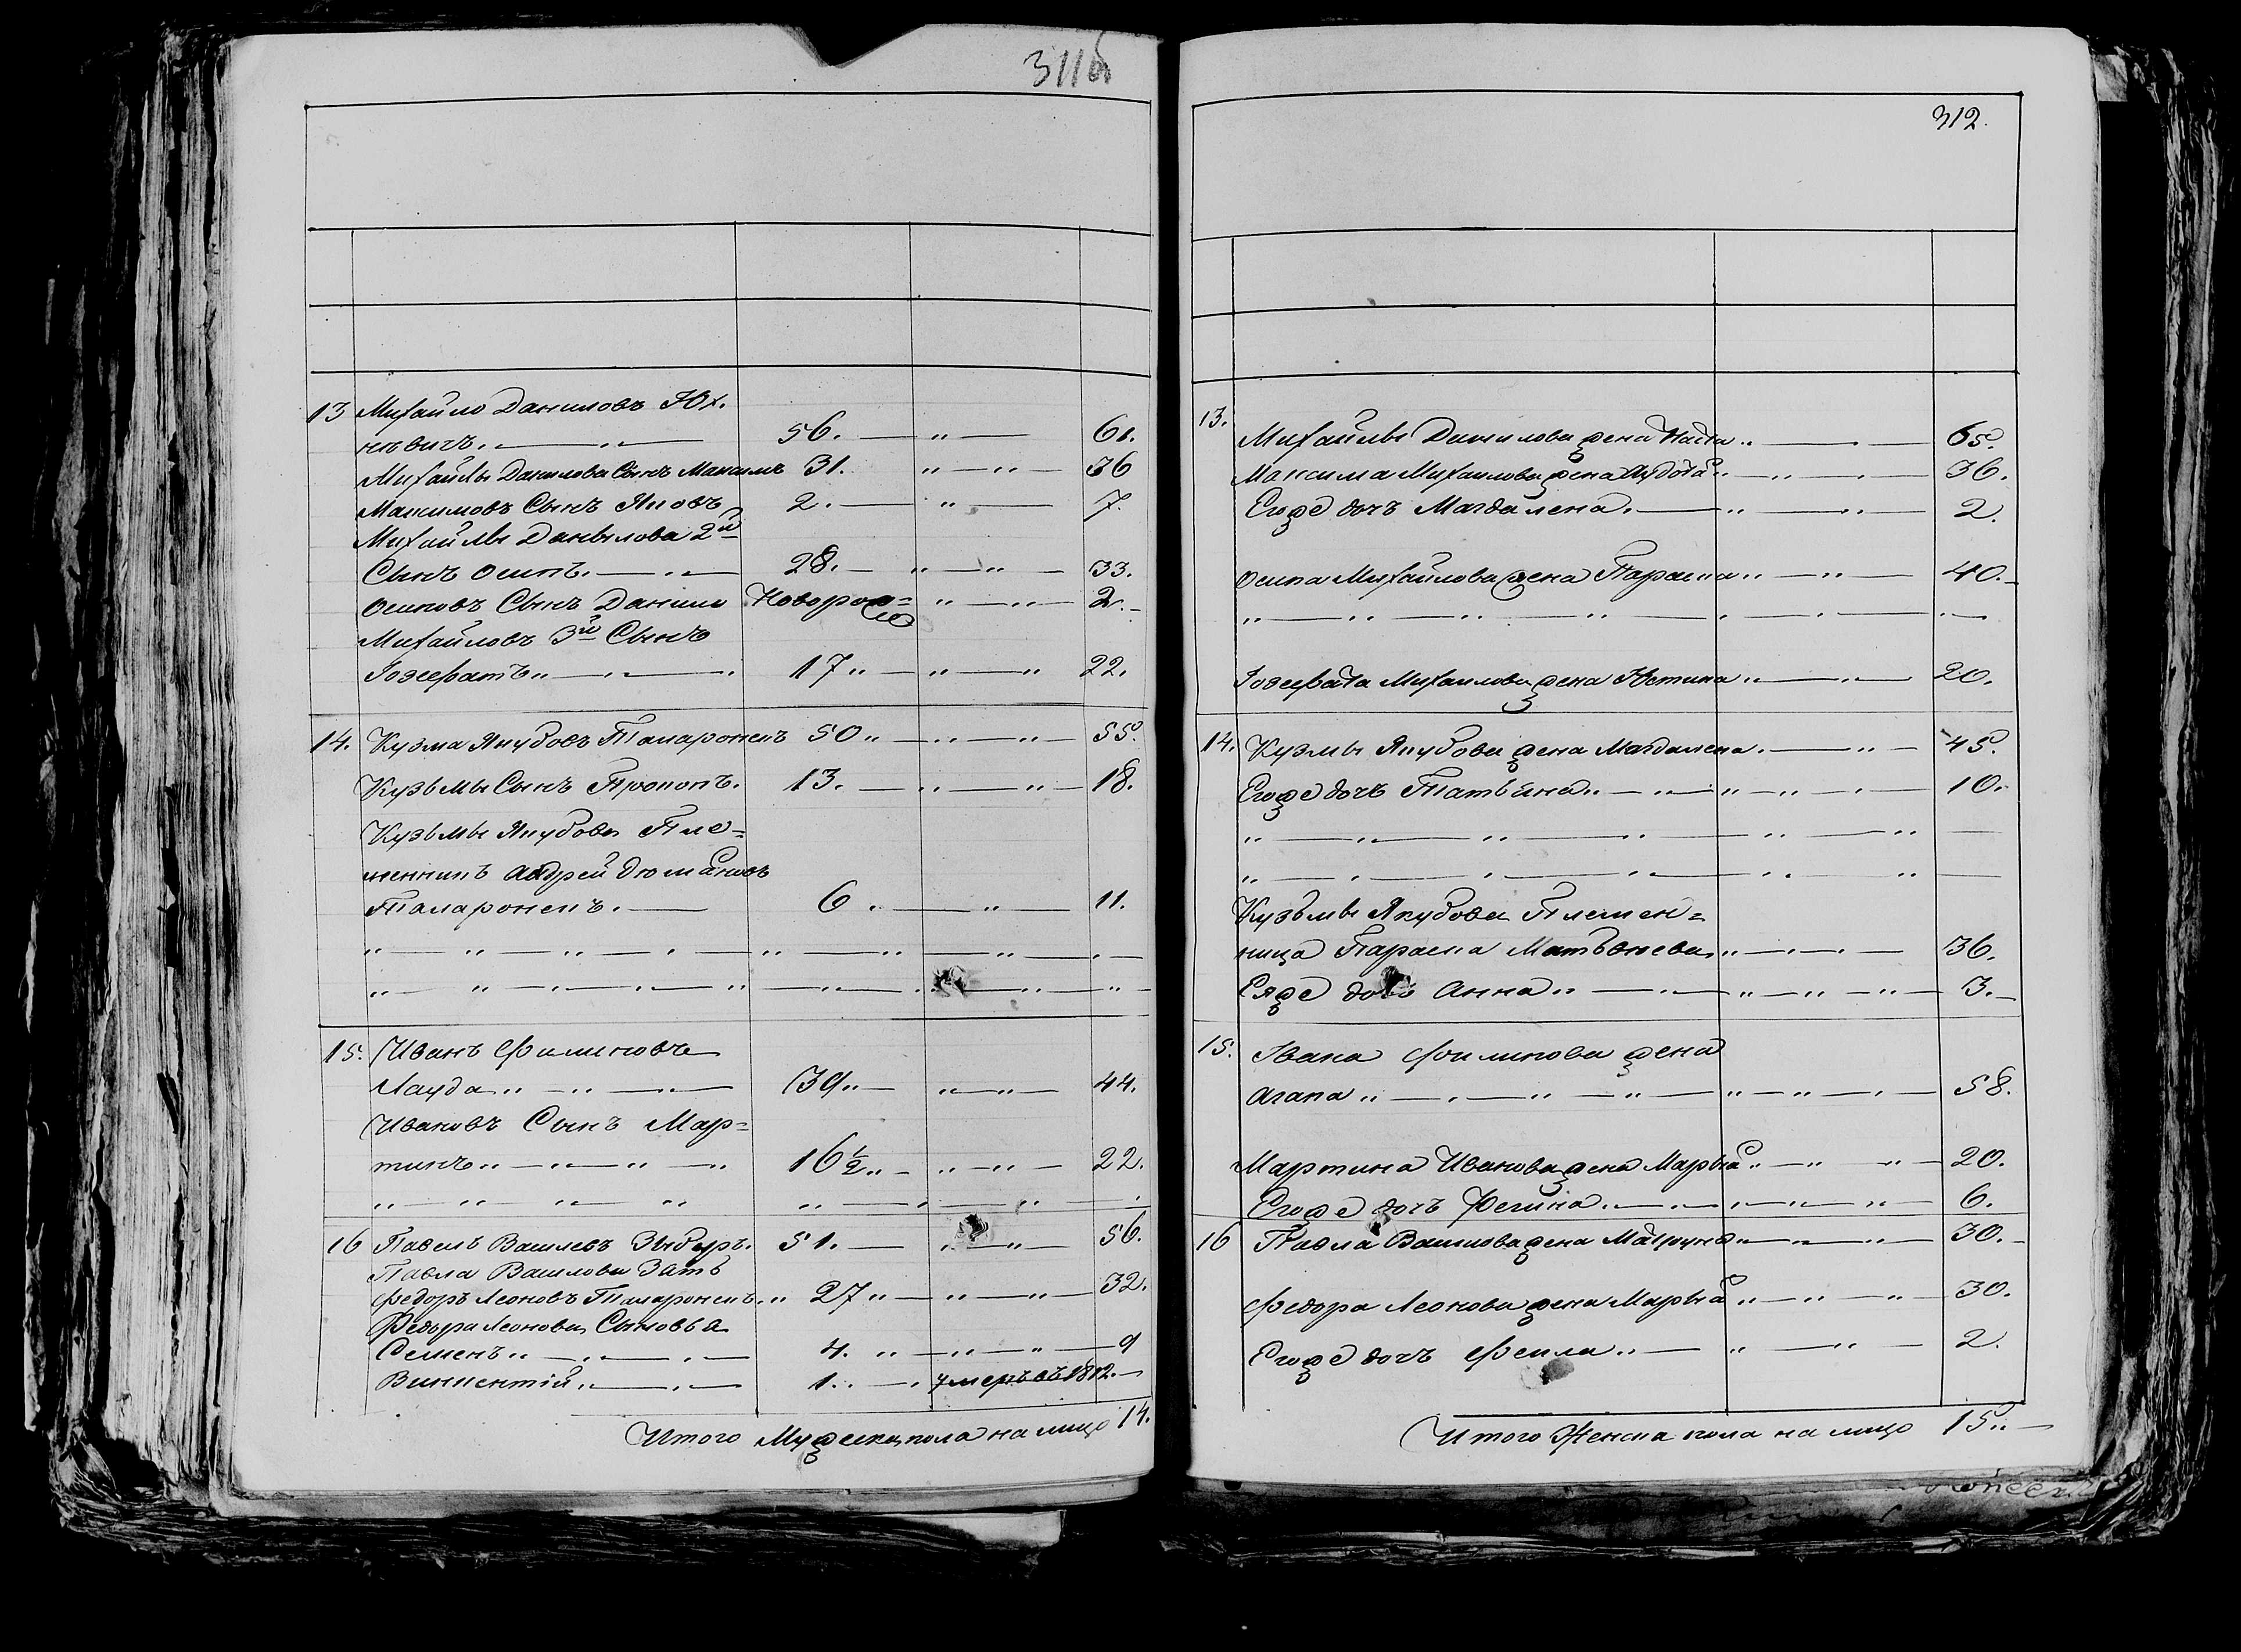 311б
13 Михайло Даниловъ Юх-
новичъ. 56. 61.
Михайлы Данилова Сынъ Максимъ 31. 36
Максимовъ Сынъ Яковъ 2. 7.
Михайлы Данилова 2й
Сынъ Осипъ. 28. 33.
Осиповъ Сынъ Данило Новорож= 2.
Михайловъ 3й Сынъ
Іозефатъ 17 22.
14. Кузма Якубовъ Тпаронекъ 50 55.
Кузьмы Сынъ Прокопъ. 13. 18.
Кузьмы Якубова Пле=
менникъ Андрей
6. 11.
15. Иванъ Филиповъ
Лауда 39 44.
Ивановъ Сынъ Мар=
тинъ 16 1/2 22.
16 Павелъ Васильевъ 51. 56.
Павла Василова Зять
Федоръ Леоновъ 27 32.
Федора Леонова Сыновья
Семенъ 4. 9
Викентій 1. умеръ въ 1812.
Итого Мужеска пола на лицо 14.
312.
13.
Михайлы Данилова жена Наста 65.
Максима Михайлова жена 36.
Егоже дочь Магдалена. 2.
Осипа Михайлова жена Параска 40.
Іозефата Михайлова жена Юстина 20.
14. Кузмы Якубова жена Магдалена. 45.
Егоже дочь Татьяна 10.
Кузьмы Якубова Племен=
ница Параска Матвѣева 36.
Еяже дочь Анна 3.
15. Ивана Филипова жена
Агапа 58.
Мартина Иванова жена Марья 20.
Егоже дочь 6.
16 Павла Василова жена Матруна 30.
Федора Леонова жена Марья 30.
Егоже дочь Фекла 2.
Итого Женска пола на лицо 15.